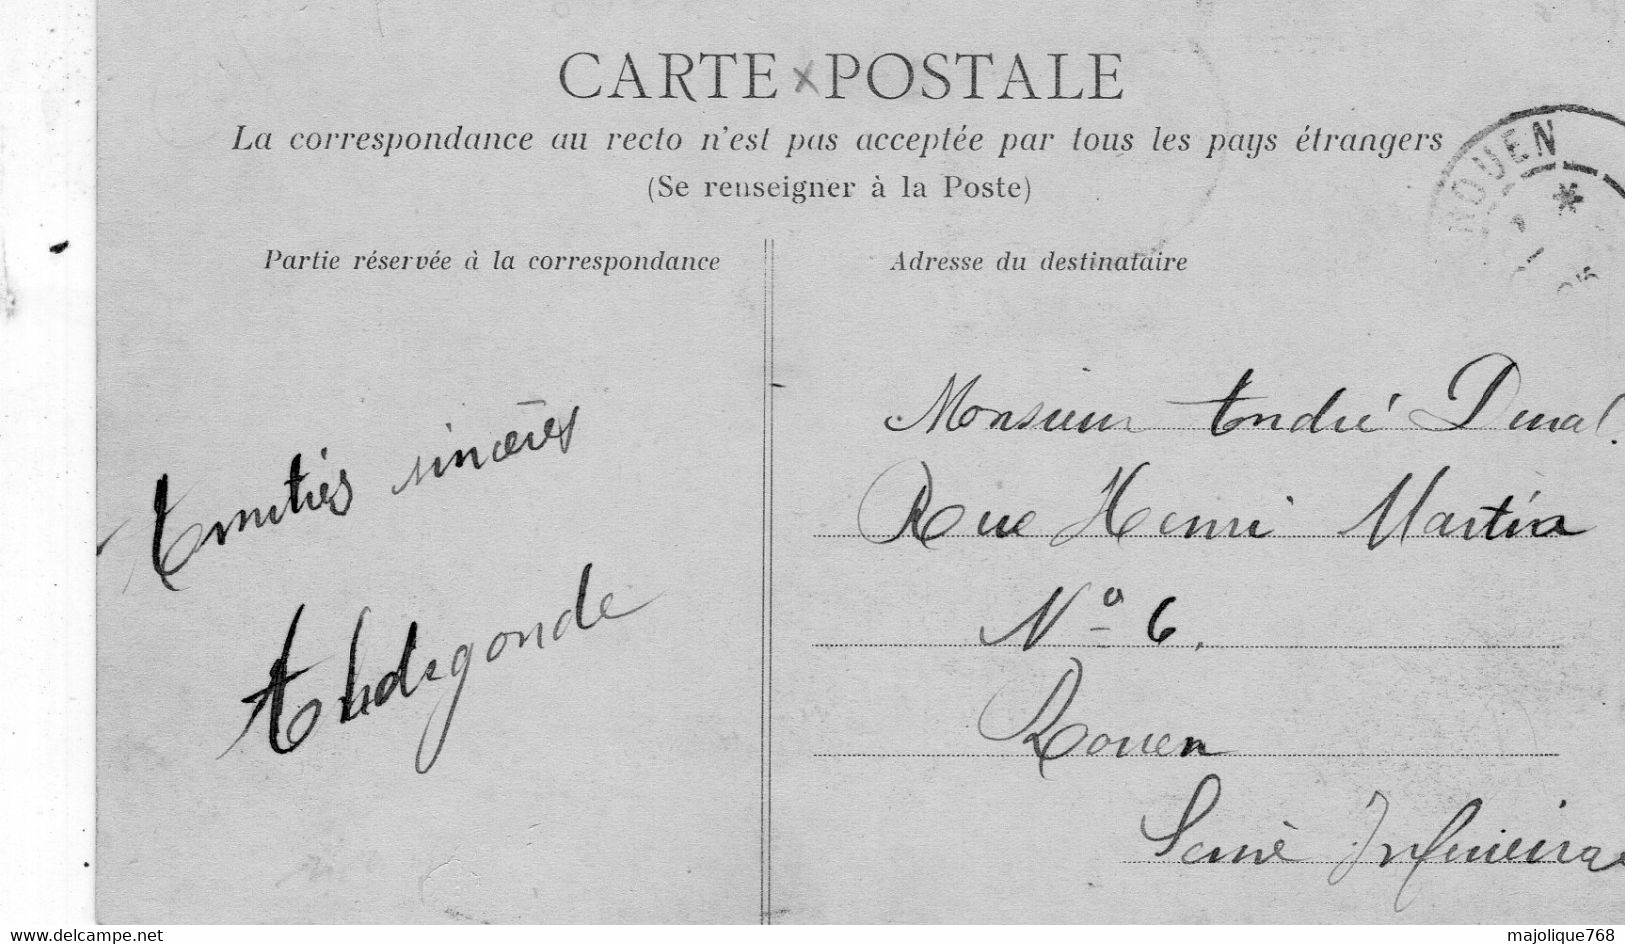 CARTE POSTALE
La correspondance au recto n'est pas acceptée par tous les pays étrangers
(Se renseigner à la Poste)
Partie réservée à la correspondance
Adresse du destinataire
ROUEN
Amitiés sincères
Aldegonde
Monsieur André Duval.
Rue Henri Martin
Nº 6.
Rouen
Seine Inférieure
www.delcampe.net
majolique768